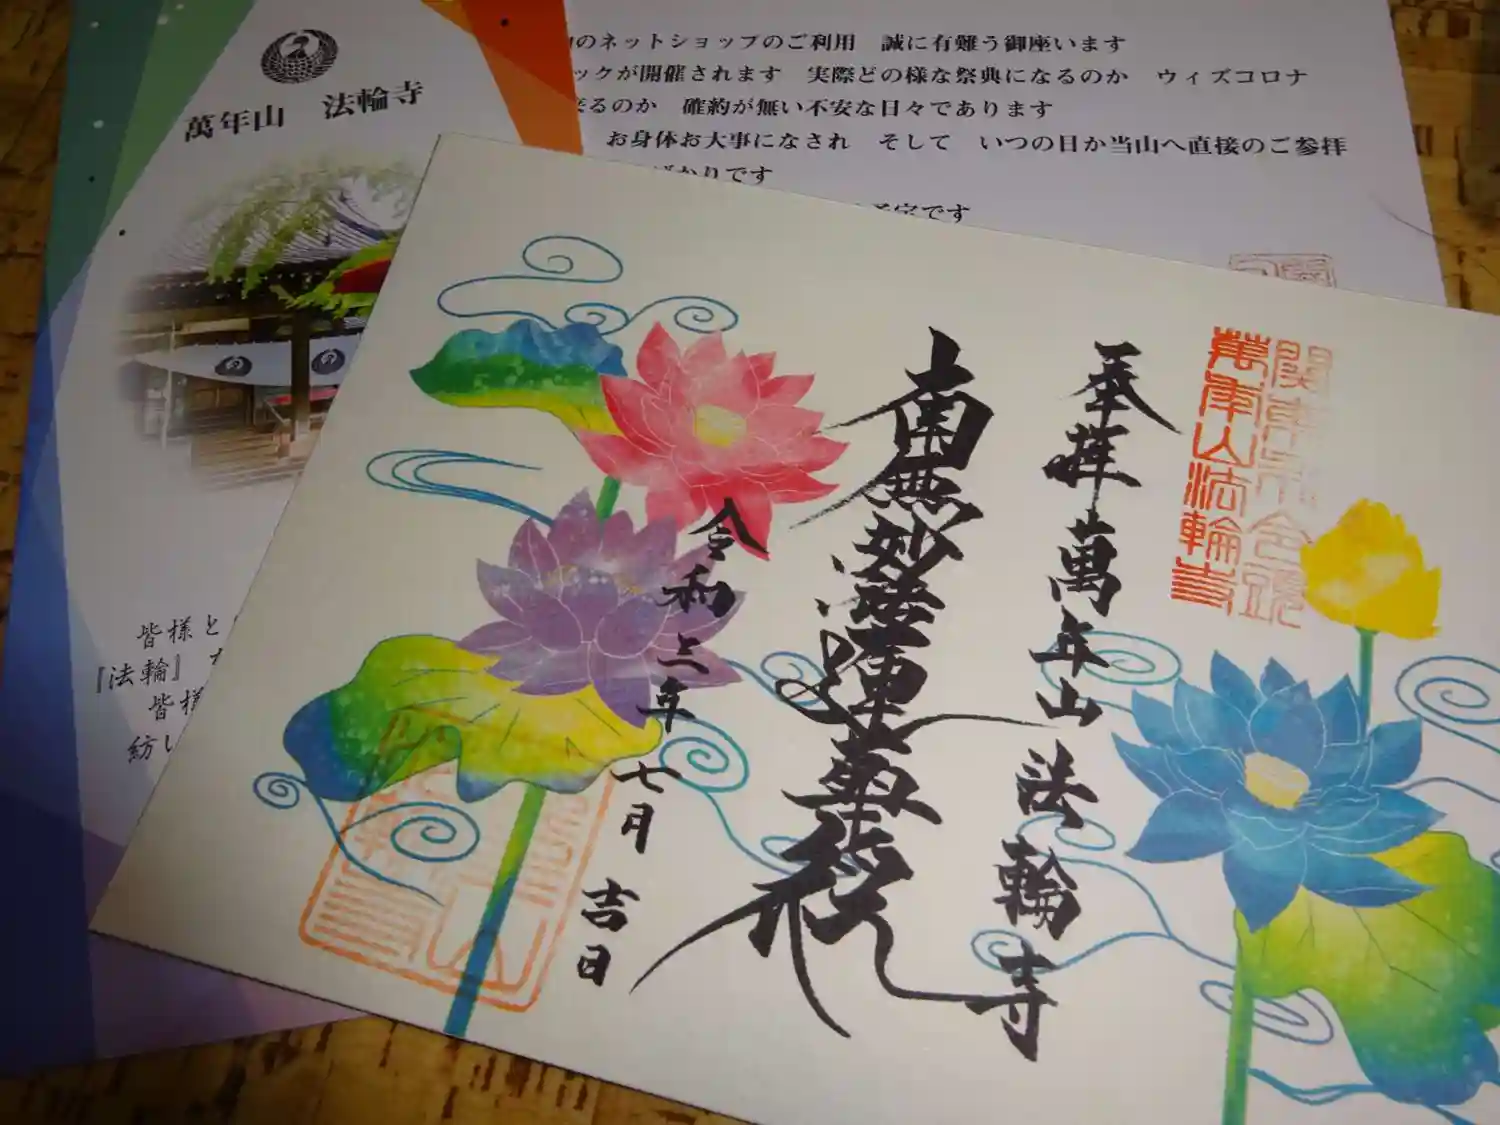 萬年山 法輪寺
のネットショップのご利用 誠に有難う御座います
ックが開催されます 実際どの様な祭典になるのか ウィズコロナ
来るのか 確約が無い不安な日々であります
お身体お大事になされ そして いつの日か当山へ直接のご参拝
ばかりです
予定です
皆様と
『法輪』
皆様
紡い
奉拝 萬年山 法輪寺
南無妙法蓮華経
令和三年七月吉日
萬年山法輪寺